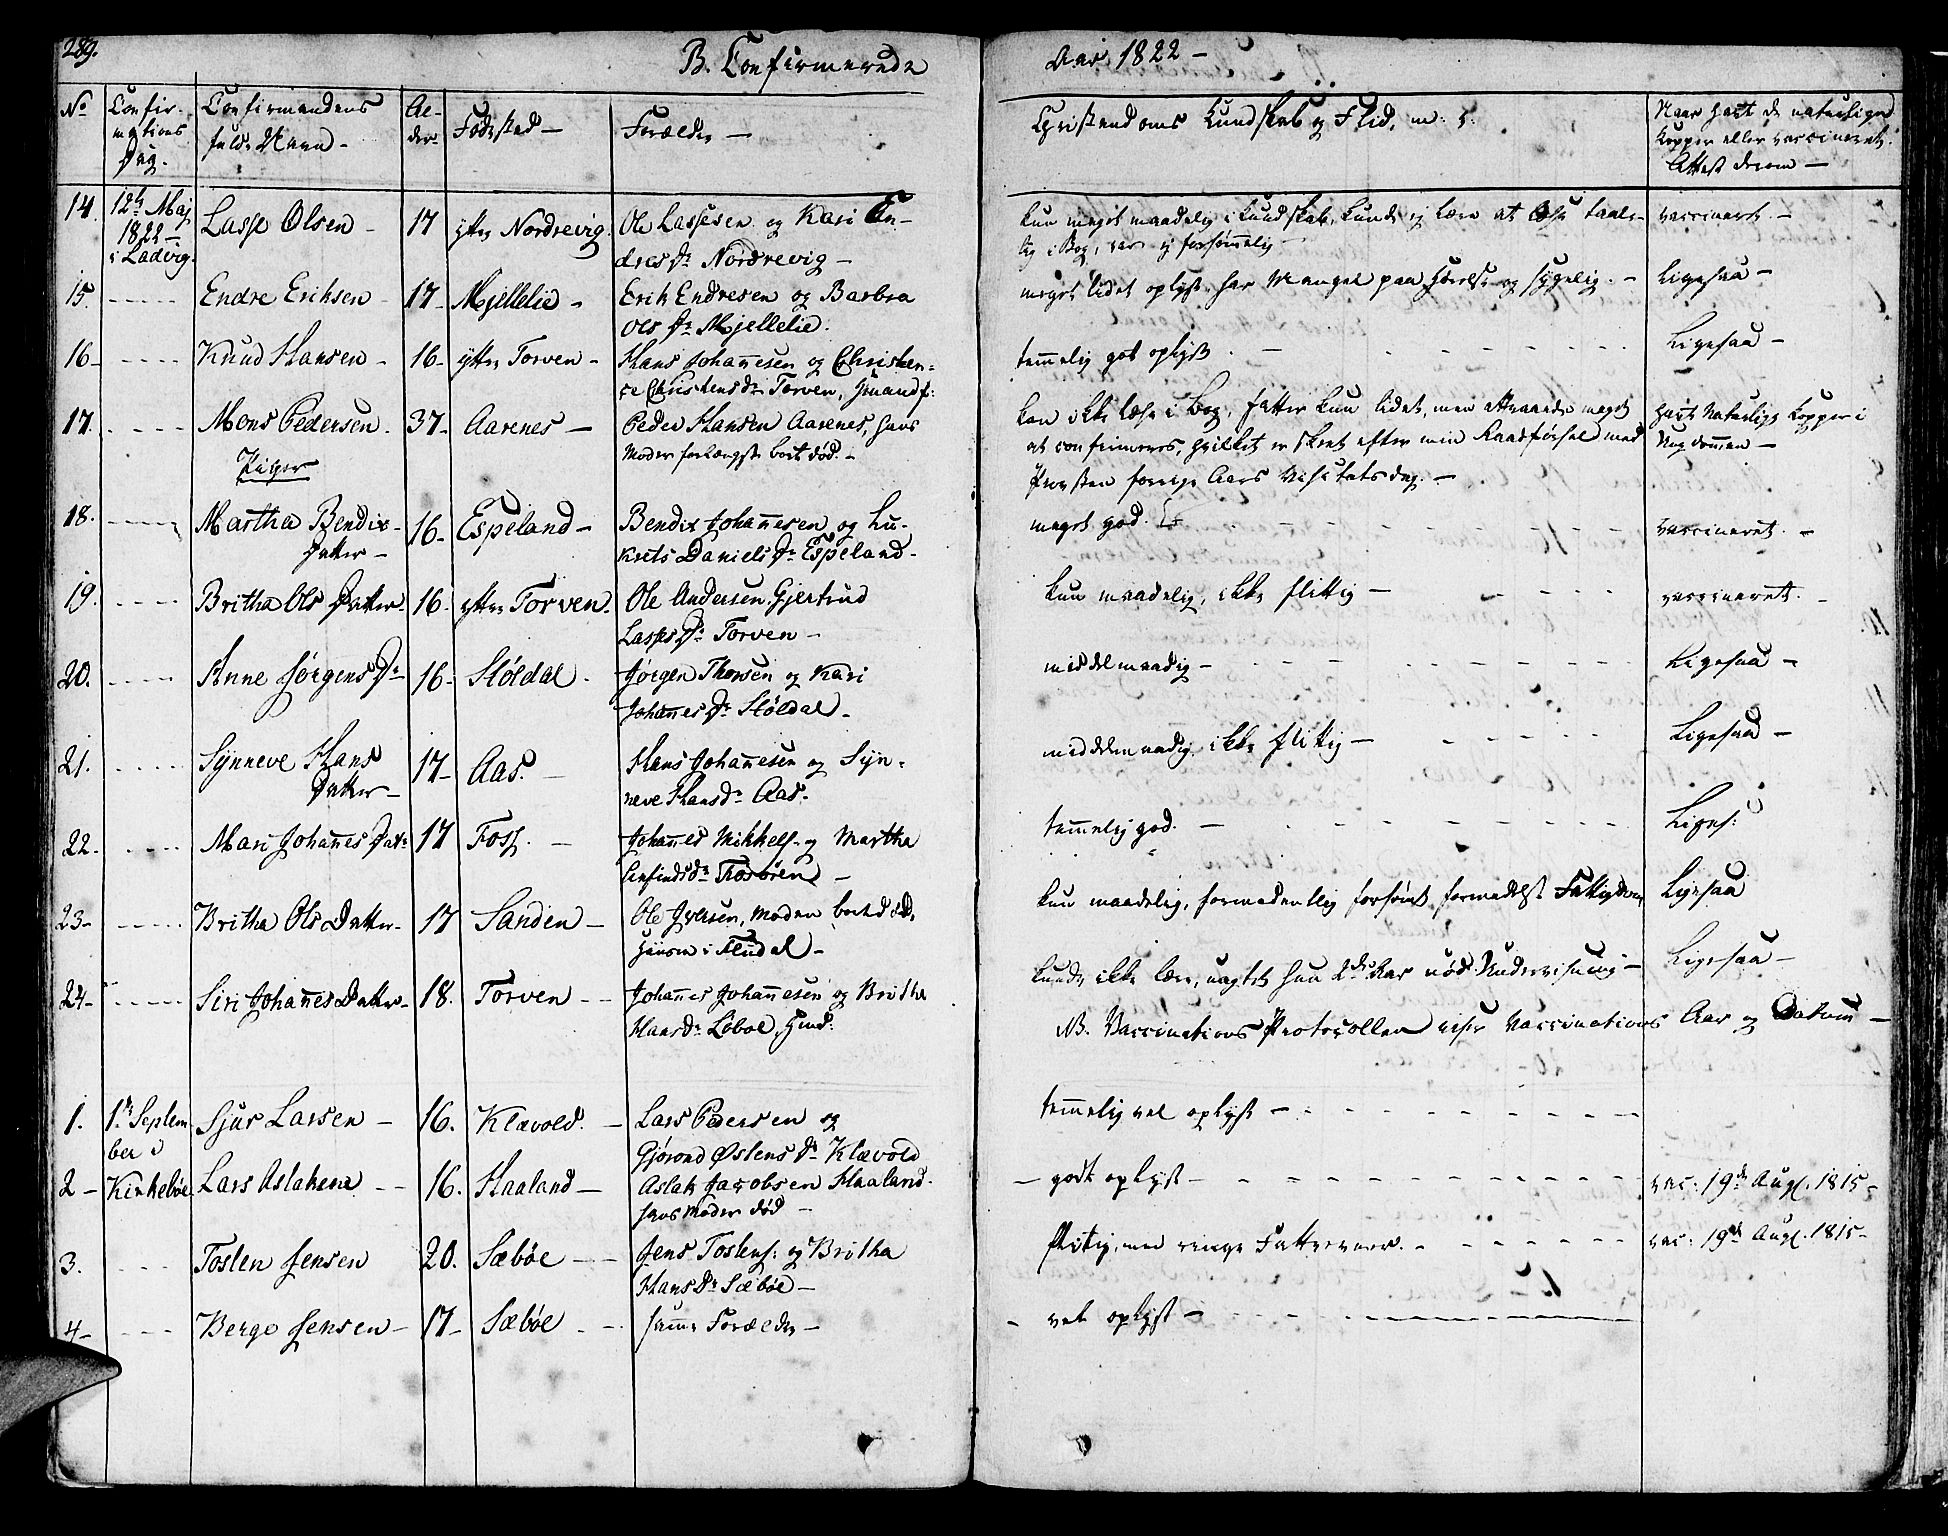 289.
B. Confirmerede
Aar 1822 -
No
Confir-
mations
Dag.
Confirmandens
fulde Navn -
Al-
der
Fødested -
Forældre -
Christendoms Kundskab og Flid, m: v:
Naar havt de naturlige
Kopper eller vaccineret.
Attest derom -
14. 12te Maj
1822 -
i Ladvig.
Lasse Olsen - 17 yttre Nordrevig. Ole Lassesen og Kari En-
dresDr Nordrevig -
kun meget maadelig i Kundskab, kunde ej lære at læse taale-
lig i Bog, var ej forsømmelig -
vaccineret. -
15. - - - - Endre Eriksen - 17 - Mjellelie - Erik Endresen og Barbra
Ols Dr Mjellelie.
meget lidet oplyst, har Mangel paa Hørelse og sygelig. -
Ligesaa -
16 - - - - - Knud Hansen - 16 - yttre Torven - Hans Johannesen og Christen-
ce Christens Dr Torven,
temmelig got oplyst. -
Ligesaa -
17. - - - - Mons Pedersen. 37 - Aarenes - Peder Hansen Aarenes, hans
Moder forlængst bort død. -
kan ikke læse i Bog, fatter kun lidet, men attraaede meget
at confirmeres, hvilket er skeet efter min Raadførsel med
Provsten forrige Aars Visitatsdag. -
havt Naturlige Kopper i
Ungdommen -
Piger
18. - - - - Martha Bendix-
Datter - 16 - Espeland - Bendix Johannesen og Lu-
krets Daniels Dr Espeland -
meget god.
vaccineret. -
19. - - - - Britha Ols Datter. 16 - yttre Torven. Ole Andersen, Gjertrud
Lasses Dr Torven -
kun maadelig, ikke flittig -
vaccineret. -
20. - - - - Anne Jørgens Dr 16 - Støldal - Jørgen Thorsen og Kari
Johannes Dr Støldal -
middelmaadig -
Ligesaa -
21. - - - - Synneve Hans
Datter - 17 - Aas. - Hans Johannesen og Syn-
neve Hansdr Aas.
middelmaadig, ikke flittig -
Ligesaa -
22. - - - - Mari Johannes Dat: 17 Foss. - Johannes Mikkels. og Martha
-
temmelig god. -
Liges:
23 - - - - - Britha Ols Datter - 17 Sanden - Ole Iversen, Moder bortdød,
i Flndal -
kun maadelig, formodentlig forsømt formedelst Fattigdom
Ligesaa
24 - - - - - Siri Johannes Datter - 18. Torven - - Johannes Johannesen og Britha
Hansdr Løboe,
kunde ikke lære, uagtet hun 2de Aar nød Underviisning -
Ligesaa -
NB. Vaccinations Protocollen viser Vaccinations Aar og Datum -
1. 1te Septem-
ber i Sjur Larsen - 16. Klævold. - Lars Pedersen og
Gjørond Østens Dr Klævold
temmelig vel oplyst -
2 - Kirkeboe Lars Aslaksen - - 16. Haaland - Aslak Jacobsen Haaland.
hans Moder død -
- godt oplyst -
vac: 19de Aug. 1815 -
3. - - - Tosten Jensen 20. Sæbøe - - Jens Tostens: og Britha
Hans Dr Sæbøe -
flitig, men ringe Fatteevne. -
vac: 19de Aug. 1815 -
4 - - - - Berge Jensen - 17 - Sæbøe - - samme Forældre -
- vel oplyst -